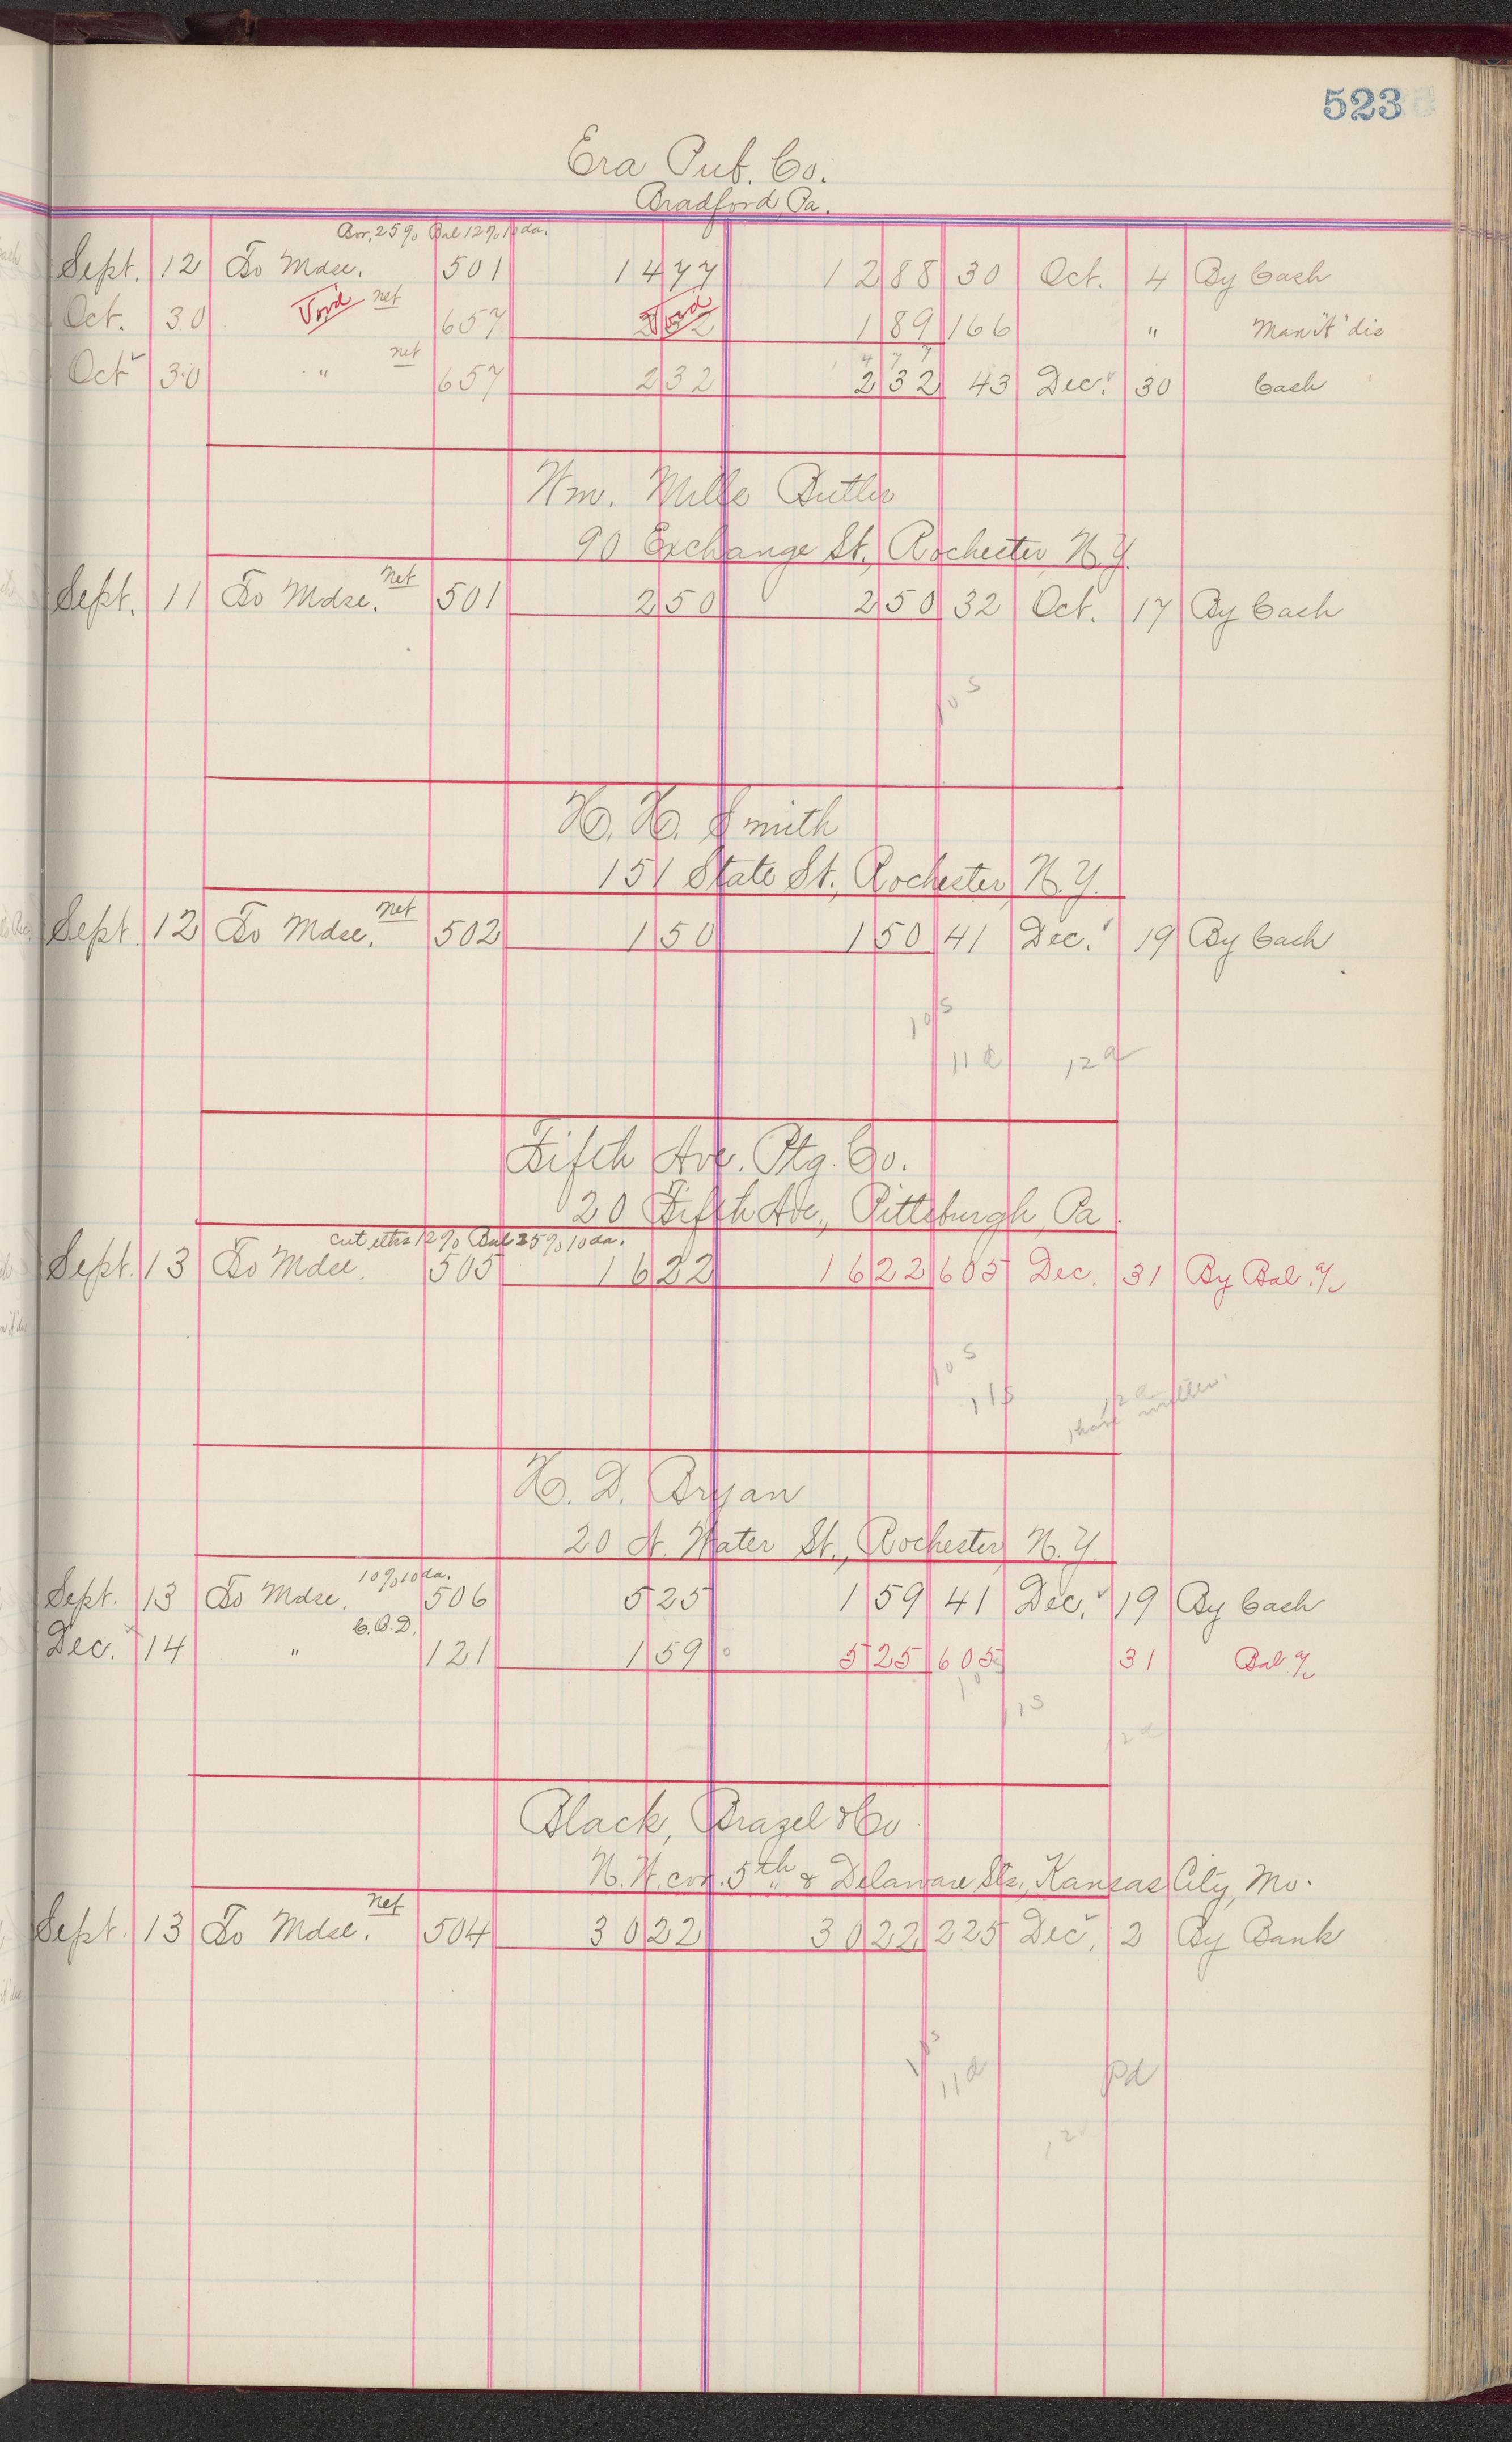 523
Era Pub. Co.
Bradford, Pa.
Bor, 25% Bal 12% 10 da.
Sept. 12 To Mdse. 501 14 77 12 88 30 Oct. 4 By Cash
Oct. 30 Void net 657 2 32 Void 1 89 166 " Manit' dis
4 7 7
Oct 30 " net 657 2 32 2 32 43 Dec. 30 Cash
Wm. Mills Butler
90 Exchange St., Rochester, N.Y.
Sept. 11 To Mdse. net 501 2 50 2 50 32 Oct. 17 By Cash
10 s
H. H. Smith
151 State St., Rochester, N.Y.
Sept. 12 To Mdse. net 502 1 50 1 50 41 Dec. 19 By Cash
10 s
11 a 12 a
Fifth Ave. Ptg. Co.
20 Fifth Ave., Pittsburgh, Pa.
cut 12% Bal 25% 10 da.
Sept. 13 To Mdse. 505 16 22 16 22 605 Dec. 31 By Bal. a/c
10 s
11 s 12 a
have written.
H. D. Bryan
20 N. Water St., Rochester, N.Y.
10% 10 da.
Sept. 13 To Mdse. 506 5 25 1 59 41 Dec. 19 By Cash
C.O.D.
Dec. 14 " 121 1 59 5 25 605 31 Bal. a/c
10 s
11 s
12 a
Black, Brazel & Co.
N.W. cor. 5th & Delaware Sts., Kansas City, Mo.
Sept. 13 To Mdse. net 504 30 22 30 22 225 Dec. 2 By Bank
10 s
11 a Pd
12